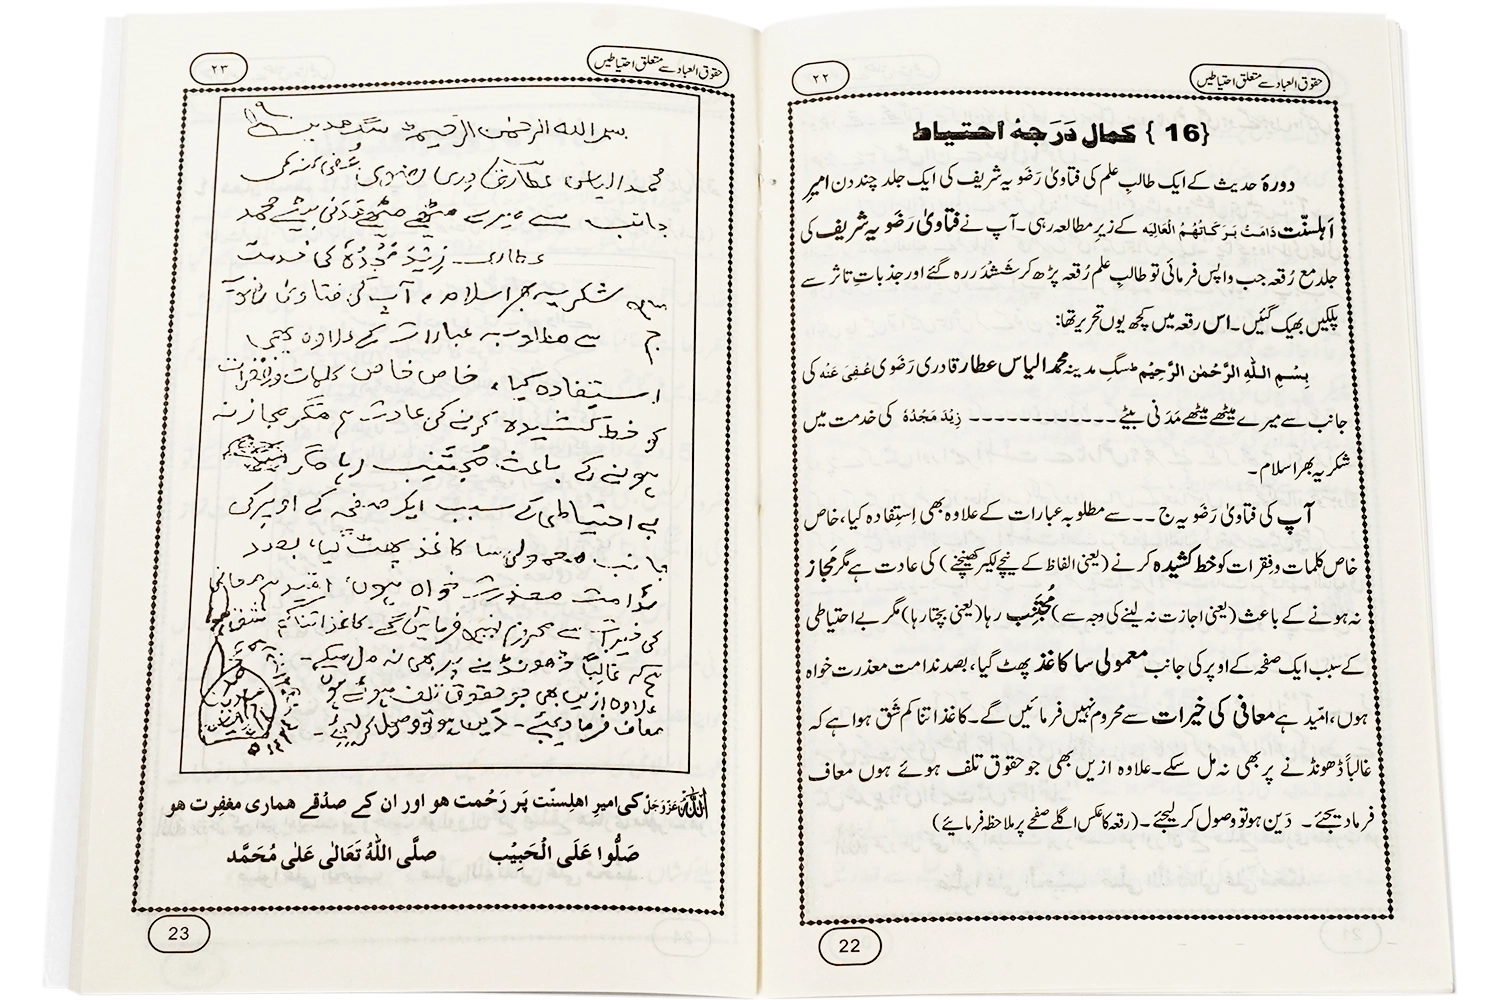 حقوق العباد سے متعلق احتیاطیں
۲۲
{16} کمال دَرَجہ احتیاط
دورۂ حدیث کے ایک طالبِ علم کی فتاویٰ رَضَویہ شریف کی ایک جلد چند دن امیرِ
اَہلسنّت دَامَتْ بَرَکَاتُہُمُ الْعَالِیَہ کے زیرِ مطالعہ رہی۔ آپ نے فتاویٰ رَضَویہ شریف کی
جلد مع رُقعہ جب واپس فرمائی تو طالبِ علم رُقعہ پڑھ کر شَشْدَر رہ گئے اور جذباتِ تاثر سے
پلکیں بھیگ گئیں۔ اس رقعہ میں کچھ یوں تحریر تھا:
بِسْمِ اللہِ الرَّحْمٰنِ الرَّحِیْمِ سگِ مدینہ محمد الیاس عطار قادری رَضَوی عُفِیَ عَنْہُ کی
جانب سے میرے میٹھے میٹھے مَدَنی بیٹے ۔۔۔۔۔۔۔۔۔۔۔۔ زِیْدَ مَجْدُہٗ کی خدمت میں
شکریہ بھرا سلام۔
آپ کی فتاویٰ رَضَویہ ج ۔۔ سے مطلوبہ عبارات کے علاوہ بھی اِستِفادہ کیا، خاص
خاص کلمات و فِقرات کو خط کشیدہ کرنے (یعنی الفاظ کے نیچے لکیر کھینچنے) کی عادت ہے مگر مَجاز
نہ ہونے کے باعث (یعنی اجازت نہ لینے کی وجہ سے) مُجْتَنِب رہا (یعنی بچتا رہا) مگر بے احتیاطی
کے سبب ایک صفحہ کے اوپر کی جانب معمولی سا کاغذ پھٹ گیا، بصد ندامت معذرت خواہ
ہوں، امّید ہے معافی کی خیرات سے محروم نہیں فرمائیں گے۔ کاغذ اتنا کم شَق ہوا ہے کہ
غالباً ڈھونڈنے پر بھی نہ مل سکے۔ علاوہ ازیں بھی جو حقوق تلف ہوئے ہوں معاف
فرما دیجئے۔ دَین ہو تو وصول کر لیجئے۔ (رقعہ کا عکس اگلے صفحے پر ملاحظہ فرمائیے)
22
حقوق العباد سے متعلق احتیاطیں
۲۳
بسم اللہ الرحمٰن الرحیم سگِ مدینہ
محمد الیاس عطار قادری رضوی عُفِیَ عنہ کی
جانب سے میرے میٹھے میٹھے مَدَنی بیٹے محمد
عطاری زِیْدَ مَجْدُہٗ کی خدمت
میں شکریہ بھرا سلام، آپ کی فتاویٰ رضویہ
ج سے مطلوبہ عبارات کے علاوہ بھی
استفادہ کیا، خاص خاص کلمات و فقرات
کو خط کشیدہ کرنے کی عادت ہے مگر مجاز نہ
ہونے کے باعث مُجْتَنِب رہا مگر
بے احتیاطی کے سبب ایک صفحہ کے اوپر کی
جانب معمولی سا کاغذ پھٹ گیا، بصد
ندامت معذرت خواہ ہوں، امّید ہے معافی
کی خیرات سے محروم نہیں فرمائیں گے۔ کاغذ اتنا کم شق ہوا
ہے کہ غالباً ڈھونڈنے پر بھی نہ مل سکے۔
علاوہ ازیں بھی جو حقوق تلف ہوئے ہوں
معاف فرما دیجئے۔ دَین ہو تو وصول کر لیجئے۔
اللہ عَزَّوَجَلَّ کی امیرِ اہلسنّت پَر رَحْمت ہو اور ان کے صدْقے ہماری مغفِرت ہو
صَلُّوا عَلَی الْحَبِیْب صلَّی اللہُ تَعَالٰی عَلٰی مُحَمَّد
23